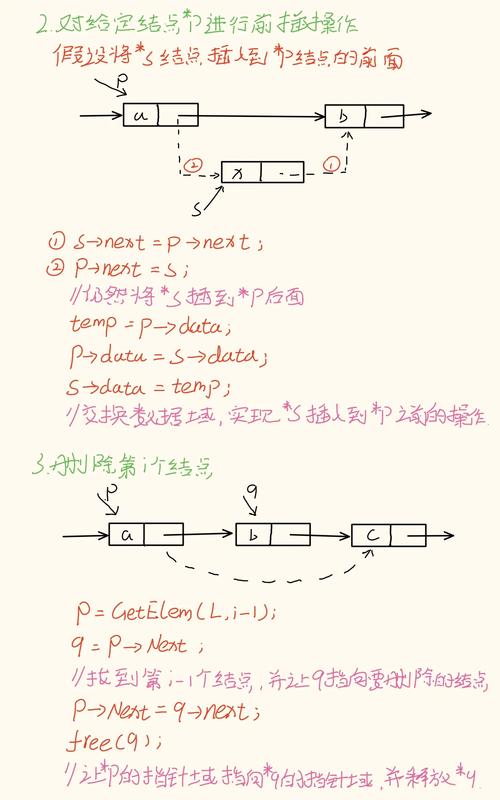 2.对给定结点*P进行前插操作
假设将*S结点插入到*P结点的前面
P
a
b
② x ①
S
① S→next = P→next;
② P→next = S;
//仍然将*S插到*P后面
temp = P→data;
P→data = S→data;
S→data = temp;
//交换数据域,实现*S插入到*P之前的操作.
3.删除第i个结点
P q
a b c
P = GetElem(L,i-1);
q = P→Next;
//找到第i-1个结点,并让q指向要删除的结点
P→Next = q→next;
free(q);
//让*P的指针域指向*q的指针域,并释放*q.